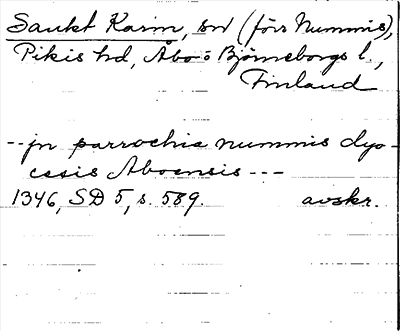 Sankt Karin, sn (förr Nummis),
Pikis hd, Åbo o Björneborgs l.,
Finland
-- jn parrochia nummis dyo-
cesis Aboensis ---
1346, SD 5, s. 589. avskr.